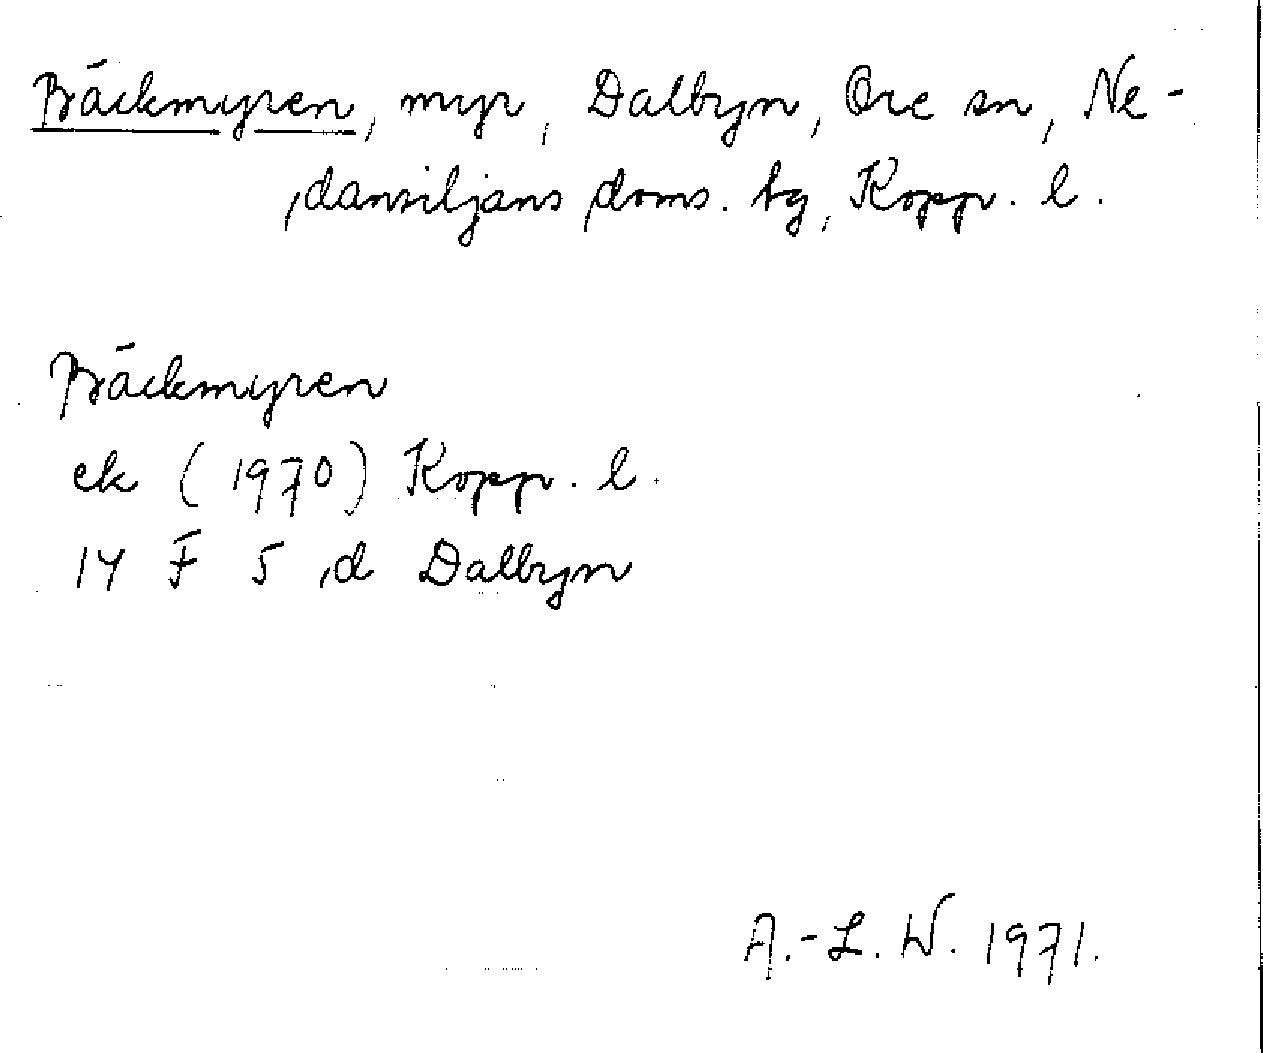 Bäckmyren, myr, Dalbyn, Ore sn, Ne-
dansiljans doms. tg, Koppr. l.
Bäckmyren
ek (1970) Koppr. l.
14 F 5 d Dalbyn
A.-L. W. 1971.